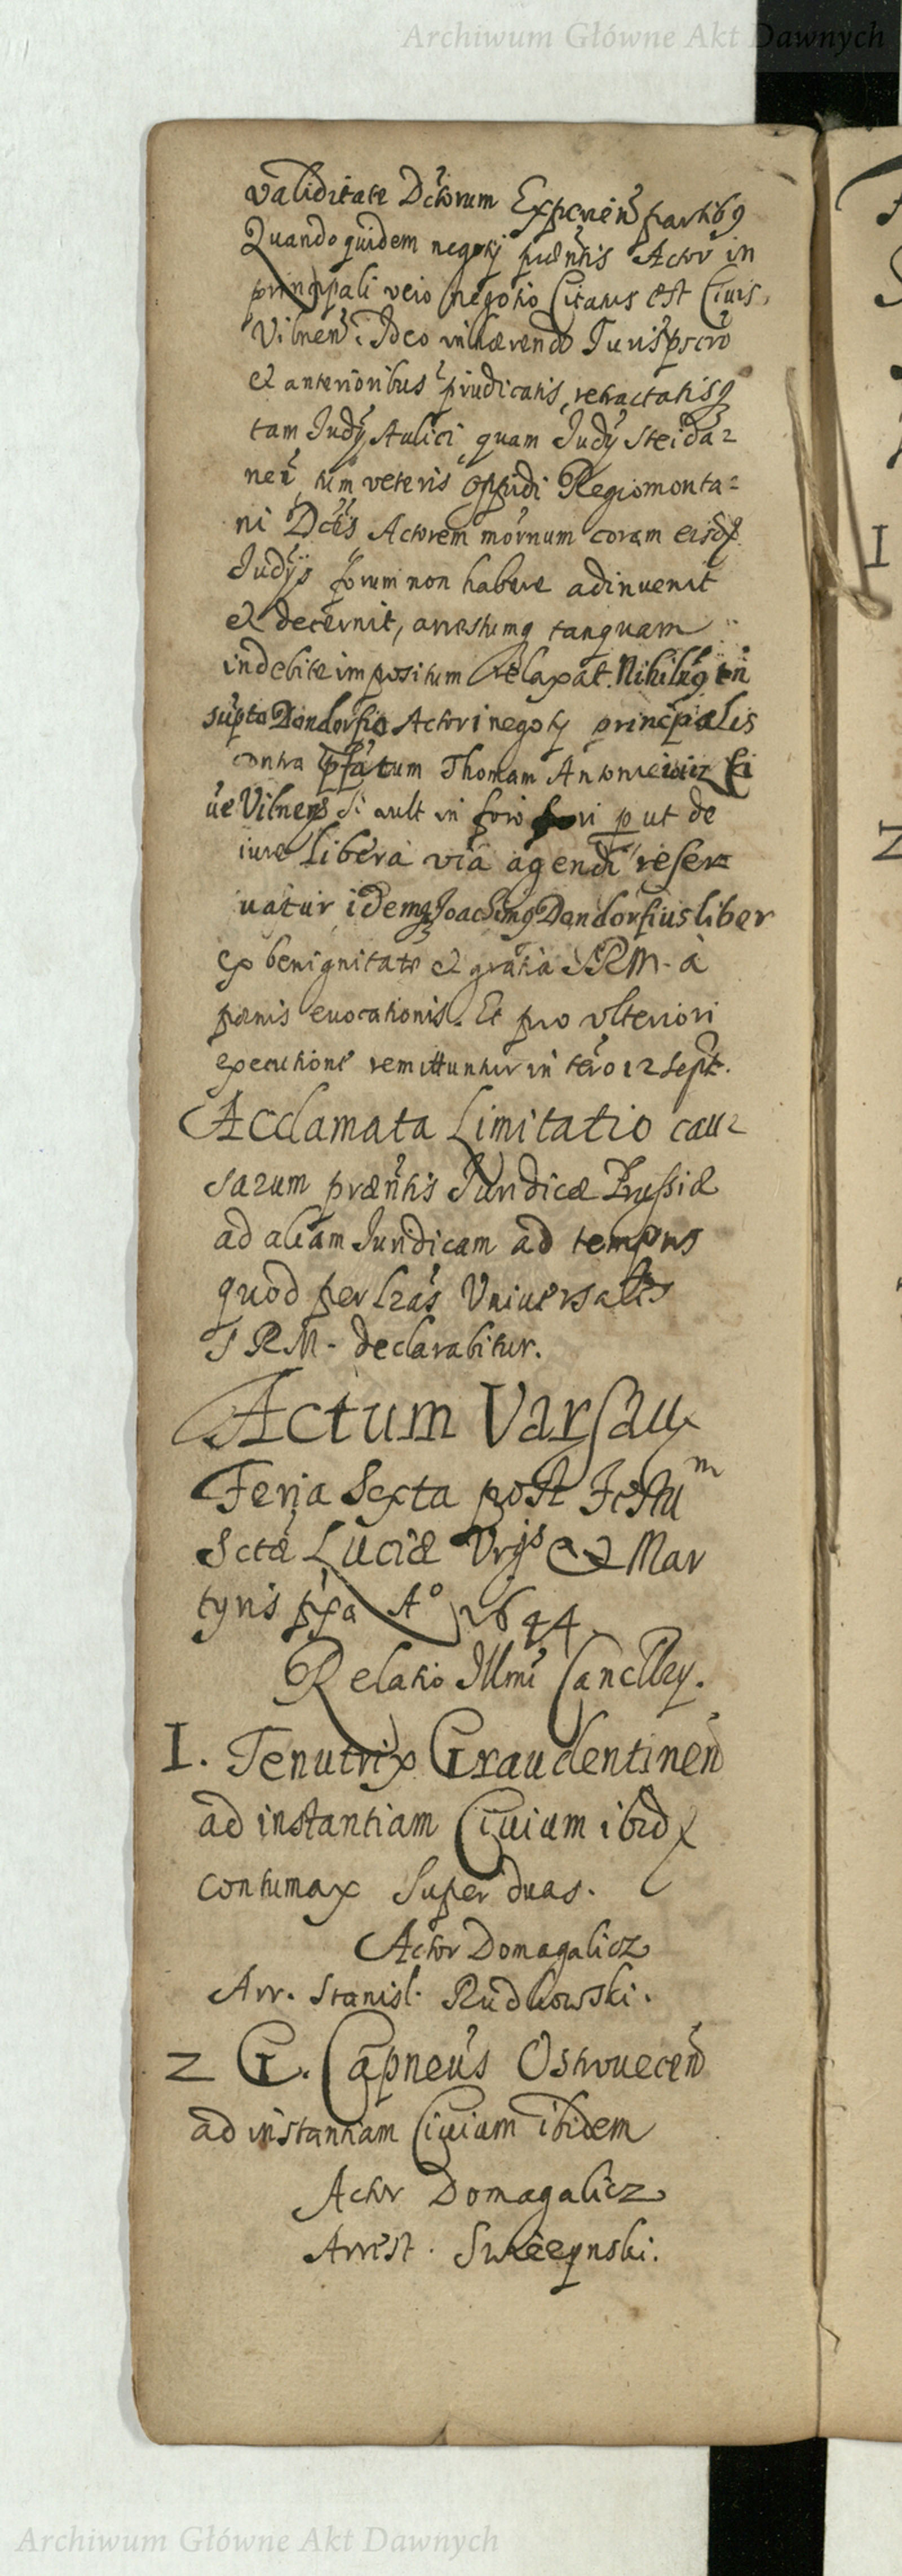 Archiwum Główne Akt Dawnych
validitate Dctorum Experien partibq
Quandoquidem negotij præntis Actor in
principali vero negotio Citatus est Civis
Vilnen. Ideo inhærendo Juris pscro
et anterioribus prudicatis, retractatisq
tam Judÿ Aulici quam Judÿ Steida=
nen, tum veteris oppidi Regiomonta=
ni Dctis Actorem mornum coram eisd
Judijs forum non habere adinuenit
et decernit, arrestumq tanquam
indebite impositum relaxat. Nihilq tn
supto Dandorfio Actori negotij principalis
contra pfatum Thomam Antoniewicz Ci
ue Vilnens si ault in foro fori p ut de
iure libera via agendi reser=
uatur idemq Joachimq Dandorfius liber
ex benignitate et gratia SRM. a
pænis euocationis. Et pro vlteriori
executione remittuntur in tero 12 sept.
Acclamata Limitatio cau=
sarum præntis Juridicæ Prussiæ
ad aliam Juridicam ad tempus
quod per Lras Vniuersales
SRM - declarabitur.
Actum Varsau
Feria Sexta post Festu m
Sctæ Luciæ Vrgis et Mar
tyris pxa Aº 1644.
Relatio Illmi Cancllrÿ.
I. Tenutrix Graudentinen
ad instantiam Ciuium ibid
contumax super duas.
Actor Domagalicz
Arr. Stanisl. Rudkowski.
2 G. Capneus Ostrouecen
ad instantiam Ciuium ibidem
Actor Domagalicz
Arrest.
Archiwum Główne Akt Dawnych